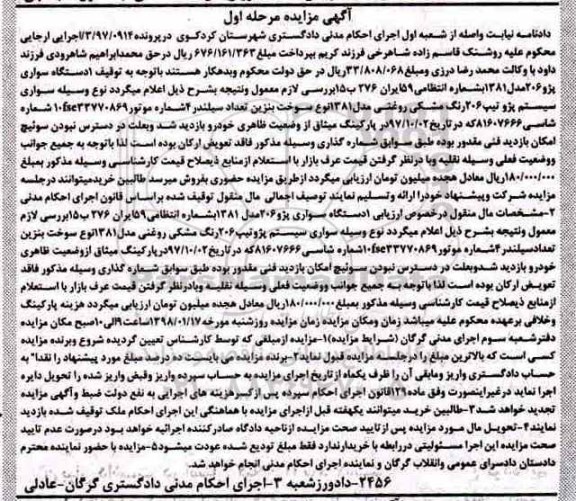 آگهی مزایده مرحله اول
دادنامه نیابت واصله از شعبه اول اجرای احکام مدنی دادگستری شهرستان کردکوی درپرونده ۳/۹۷/۰۹۱۴اجرایی ارجایی
محکوم علیه روشتک قاسم زاده شاهرخی فرزند کریم بپرداخت مبلغ ۶۷۶/۱۶۱/۳۶۳ریال در حق محمدابراهیم شاهرودی فرزند
داود با وکالت محمد رضا درزی ومبلغ ۳۳/۸۰۸/۰۶۸ریال در حق دولت محکوم وبدهکار هستند باتوجه به توقیف ۱دستگاه سواری
پژو۲۰۶مدل۱۳۸۱بشماره انتظامی۵۹ایران ۲۷۶ ب۱۵بررسی لازم معمول ونتیجه بشرح ذیل اعلام میگردد نوع وسیله سواری
سیستم پژو تیپ۲۰۶رنگ مشکی روغنی مدل۱۳۸۱نوع سوخت بنزین تعداد سیلندر۴شماره موتور۱۰fse۳۳۷۷۰۸۶۹ شماره
شاسی۸۱۶۰۷۶۶۶که در تاریخ۹۷/۱۰/۰۲در پارکینگ میثاق از وضعیت ظاهری خودرو بازدید شد وبعلت در دسترس نبودن سوئیچ
امکان بازدید فنی مقدور بوده طبق سوابق شماره گذاری وسیله مذکور فاقد تعویض ارکان بوده است لذا باتوجه به جمیع جوانب
ووضعیت فعلی وسیله نقلیه وبا درنظر گرفتن قیمت عرف بازار با استعلام ازمنابع ذیصلاح قیمت کارشناسی وسیله مذکور بمبلغ
۱۸۰/۰۰۰/۰۰۰ریال معادل هجده میلیون تومان ارزیابی میگردد ازطریق مزایده حضوری بفروش میرسد طالبین خریدمیتوانند درجلسه
مزایده شرکت وپیشنهاد خودرا ارائه وتسلیم نمایند توصیف اجمالی مال منقول توقیف شده براساس قانون اجرای احکام مدنی
۲-مشخصات مال منقول درخصوص ارزیابی ۱دستگاه سواری پژو۲۰۶مدل ۱۳۸۱بشماره انتظامی۵۹ایران ۲۷۶ ب۱۵بررسی لازم
معمول ونتیجه بشرح ذیل اعلام میگردد نوع وسیله سواری سیستم پژوتیپ۲۰۶رنگ مشکی روغنی مدل۱۳۸۱نوع سوخت بنزین
تعدادسیلندر۴شماره موتور ۱۰fse۳۳۷۷۰۸۶۹شماره شاسی۸۱۶۰۷۶۶۶که درتاریخ۹۷/۱۰/۰۲درپارکینگ میثاق ازوضعیت ظاهری
خودرو بازدید شدوبعلت در دسترس نبودن سوئیچ امکان بازدید فنی مقدور بوده طبق سوابق شماره گذاری وسیله مذکور فاقد
تعویض ارکان بوده است لذا باتوجه به جمیع جوانب ووضعیت فعلی وسیله نقلیه وبادرنظر گرفتن قیمت عرف بازار با استعلام
ازمنابع ذیصلاح قیمت کارشناسی وسیله مذکور بمبلغ ۱۸۰/۰۰۰/۰۰۰ریال معادل هجده میلیون تومان ارزیابی میگردد هزینه پارکینگ
وخلافی برعهده محکوم علیه میباشد زمان ومکان مزایده زمان مزایده روزشنبه مورخه ۱۳۹۸/۰۱/۱۷ساعت۹الی۱۰صبح مکان مزایده
دفترشعبه سوم اجرای مدنی گرگان (شرایط مزایده)۱-مزایده ازمبلغی که توسط کارشناس تعیین گردیده شروع وبرنده مزایده
کسی است که بالاترین مبلغ را درجلسه مزایده قبول نماید۲-برنده مزایده می بایست ده درصد مبلغ مورد پیشنهاد را نقدا" به
حساب دادگستری واریز ومابقی آن را ظرف یکماه از تاریخ اجرای مزایده به حساب سپرده واریز وقبض واریز شده را تحویل دایره
اجرا نماید درغیراینصورت وفق ماده۱۲۹قانون اجرای احکام سپرده پس ازکسرهزینه های اجرایی به نفع دولت ضبط وآگهی مزایده
تجدید خواهد شد۳-طالبین خرید میتوانند یکهفته قبل ازاجرای مزایده با هماهنگی این اجرای احکام ملک توقیف شده بازدید
نمایند۴-تحویل مال مورد مزایده پس ازتایید صحت مزایده ازناحیه دادگاه صادرکننده اجرائیه خواهد بود درصورت عدم تایید
صحت مزایده این اجرا مسئولیتی دررابطه با خریدارندارد فقط مبلغ تودیع شده عودت میشود۵-مزایده با حضور نماینده محترم
دادستان دادسرای عمومی وانقلاب گرگان و نماینده اجرای احکام مدنی انجام خواهد شد.
۲۴۵۶-دادورزشعبه ۳-اجرای احکام مدنی دادگستری گرگان-عادلی